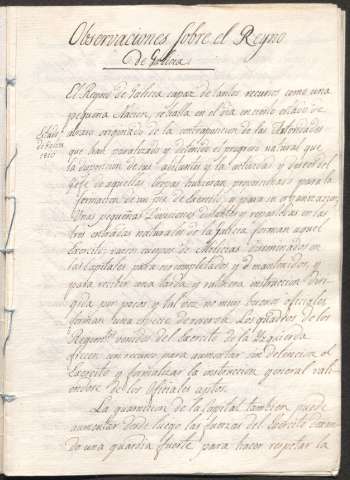 Observaciones sobre el Reyno
de Galicia.
Estado
de Galicia
1810
El Reyno de Galicia capaz de tantos recursos como una
pequeña Nacion, se halla en el dia en cierto estado de
atraso originado de la contraposicion de las Autoridades
que han paralizado y detenido el progreso natural que
la disposicion de sus abitantes y la actividad y deseos del
Gefe de aquellas tropas hubieran proporcionado para la
formacion de un pie de Exercito, y para su organizacion;
Unas pequeñas Divisiones distantes y repartidas en las
tres entradas naturales de la Galicia forman aquel
Exercito; varios cuerpos de Milicias diseminados en
las Capitales para ser completados y mantenidos, y
para recibir una tarda y rutinera instruccion diri-
gida por pocos y tal vez no muy buenos oficiales
forman una especie de reserva. Los quadros de los
Regim.tos venidos del Exercito de la Izquierda
ofrecen un recurso para aumentar sin detencion el
Exercito y formalizar la instruccion general vali-
endose de los oficiales aptos.
La guarnicion de la Capital tambien puede
aumentar desde luego las fuerzas del Exercito
do una guardia fuerte para hacer respetar la